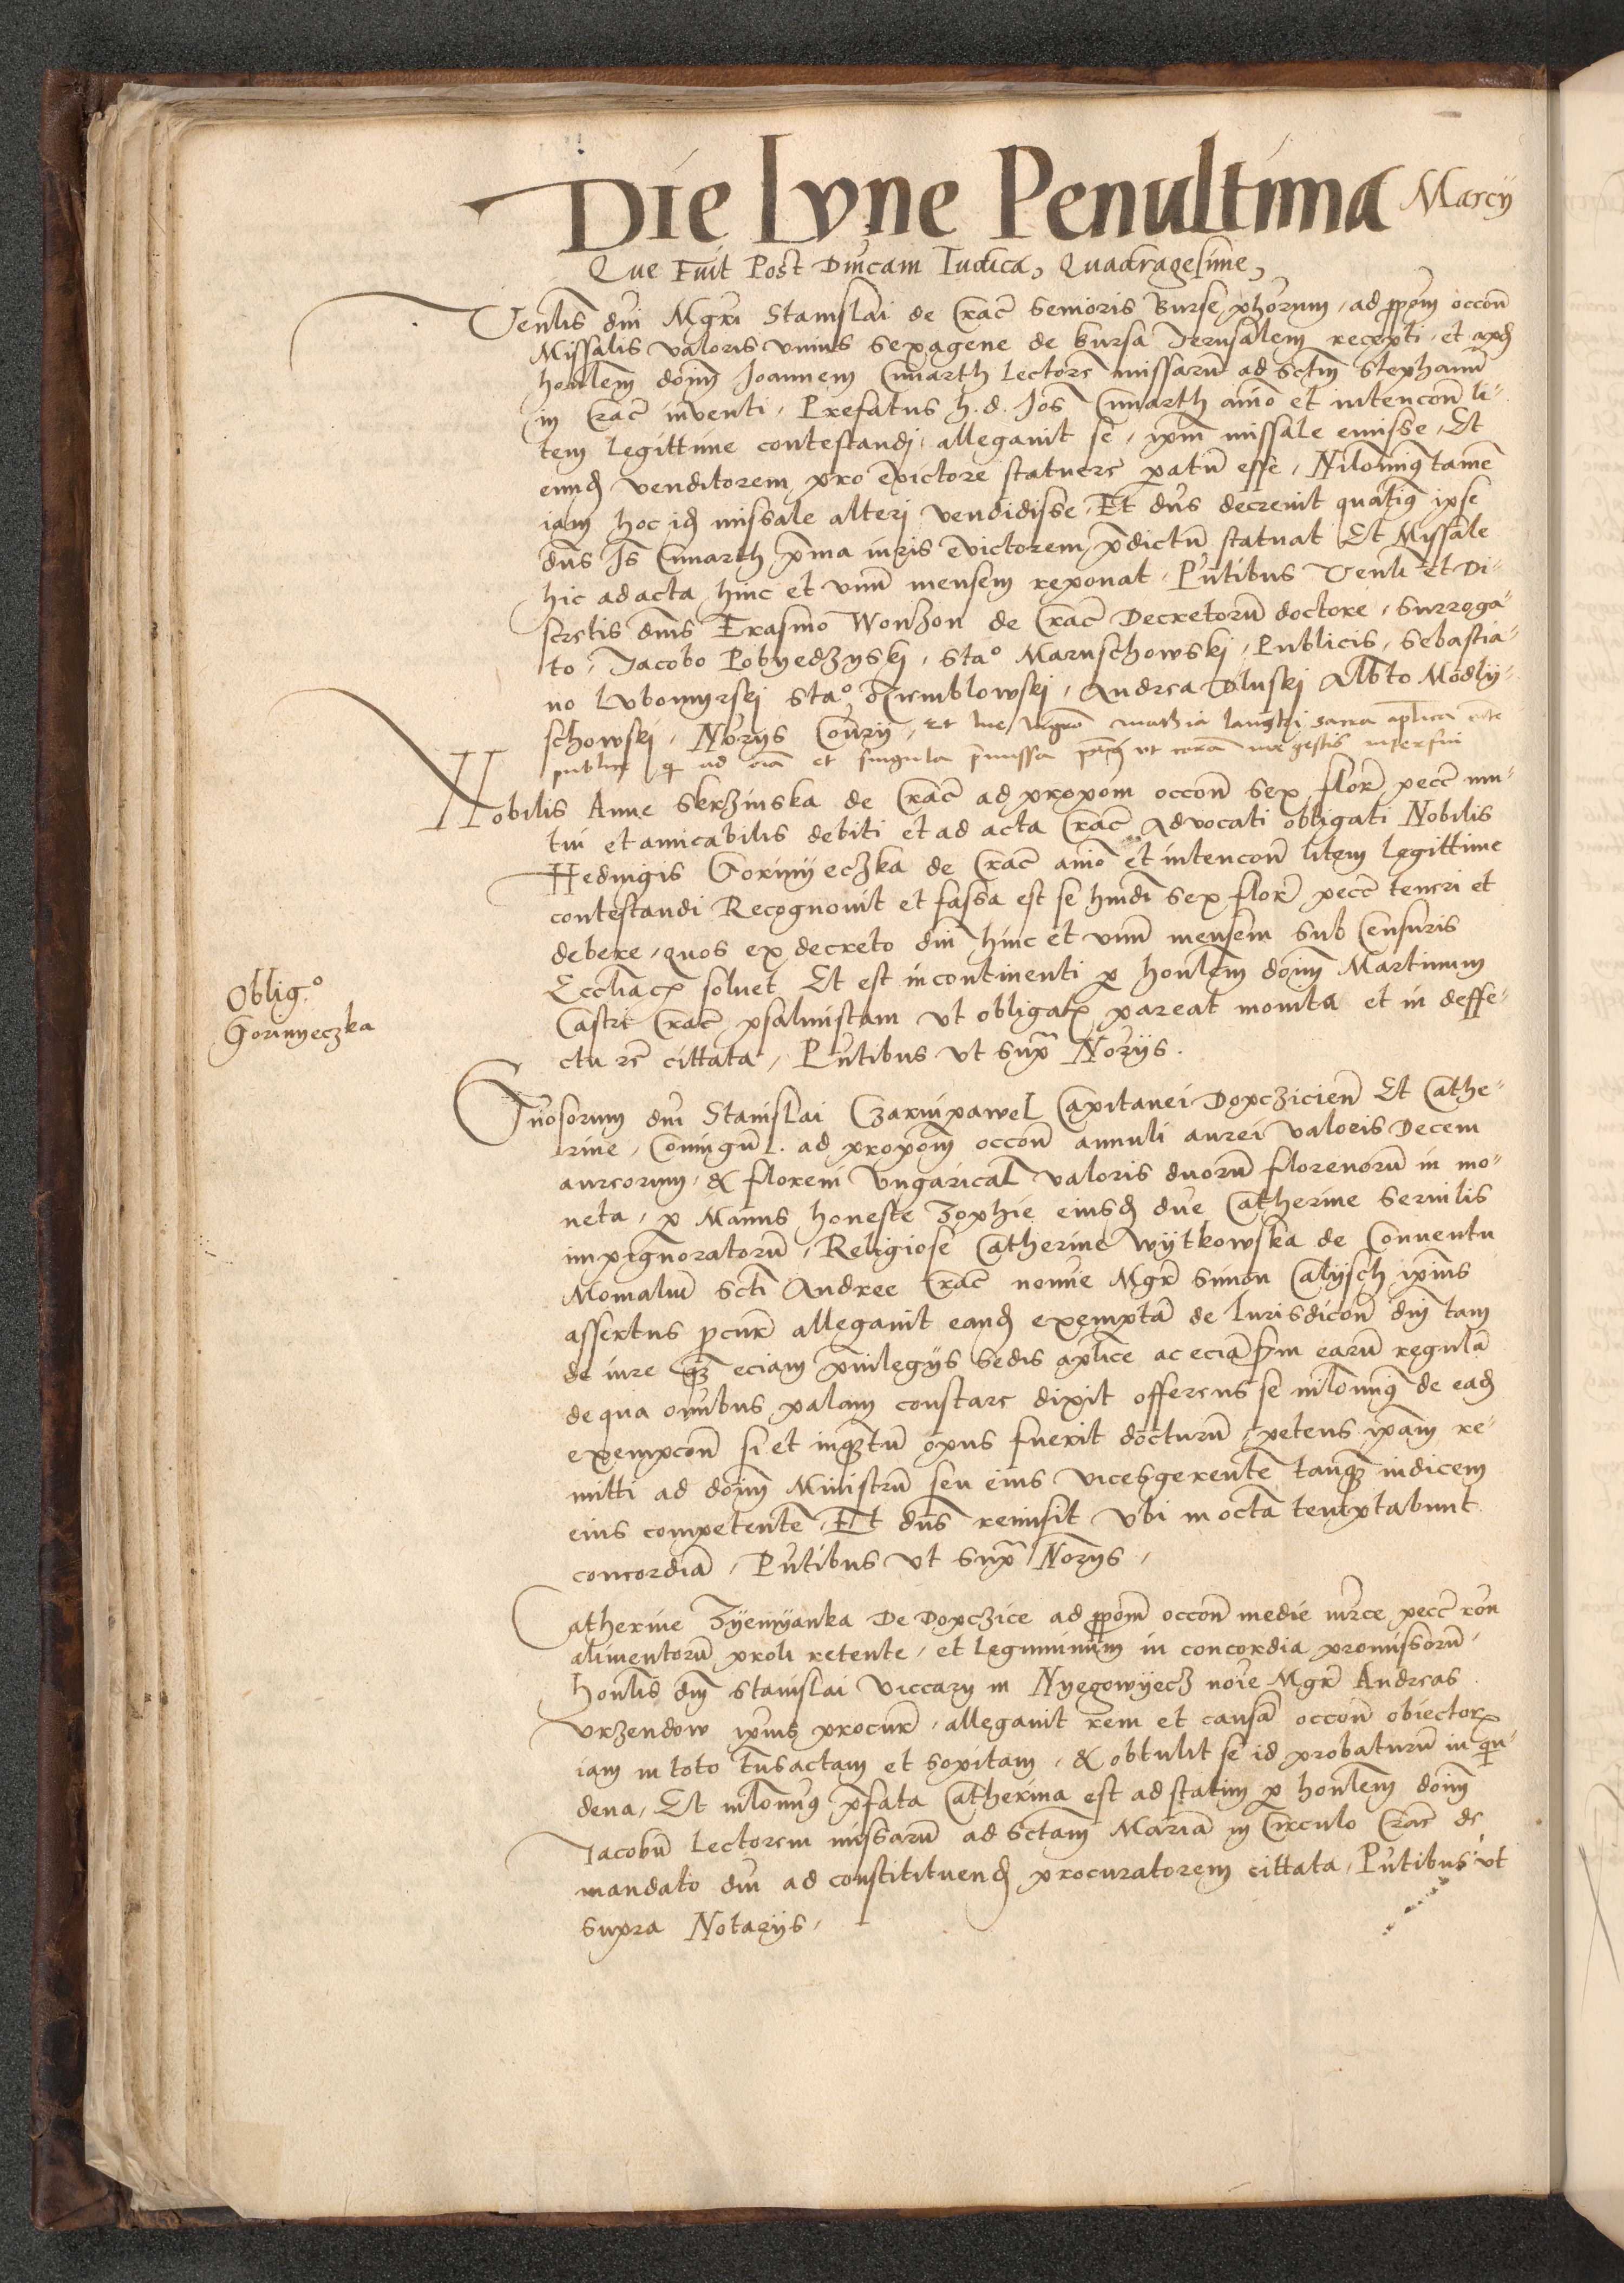 Die Lune Penultima Marcij
Que Fuit Post Dnicam Iudica, Quadragesime,
Venlis dni Mgri Stanislai de Crac Senioris Burse phorum, ad ppom occon
Missalis valoris vnius Sexagene de bursa Jerusalem recepti, et apd
honlem doim Joannem Cunarth Lectore missaru ad Sctm Stephanu
in Crac inventi, Prefatus h. d. Jos Cunarth aio et intencon li-
tem Legittime contestandi, allegavit se, ipm missale emisse, Et
eund venditorem pro evictore statuere patu esse, Nilomiq tame
iam hoc id missale alteri vendidisse, Et dns decrevit quatiq ipse
dns Js Cunarth pma iuris evictorem, pdictu statuat Et Missale
hic ad acta, hinc et vnu mensem reponat, Pntibus Venli et Di-
scretis dnis Erasmo Wonzon de Crac Decretoru doctore, Surroga-
to, Jacobo Pobyedzyskj, Stao Maruschowskj, Publicis, Sebastia-
no Lubomyrskj Stao Trumblowskj, Andrea Dluskj Albto Modly-
schowskj, Norijs Conrij, Et me Mathia sacra aplica
publico q ad oia et singula pmissa vt coram me gestis interfui
Nobilis Anne Skrzinska de Crac ad propom occon Sex flor pecc mu-
tui et amicabilis debiti et ad acta Crac Advocati obligati Nobilis
Hedvigis Gorinyeczka de Crac aio et intencon litem Legittime
contestandi Recognovit et fassa est se hmdi Sex flor pecc teneri et
debere, quos ex decreto dni hinc et vnu mensem Sub Censuris
Eccliacz solvet Et est incontinenti p honlem doim Martinum
Castri Crac psalmistam vt obligatz pareat monita et in deffe-
ctu re cittata, Pntibus vt Supra Norijs.
Oblig.o
Gorinyeczka
Gnosorum dni Stanislai Czarnipawel Capitanei Dopczicien Et Cathe-
rine, Coniugu. ad propom occon annuli aurei valoris Decem
aureorum, & floreni Vngarical valoris duoru florenoru in mo-
neta, p Manus honeste Zophie eiusd dne Catherine Servilis
impignoratoru, Religiose Catherine Wytkowska de Conventu
Monialiu Scti Andree Crac noie Mgr Simon Calysch ipius
assertus pcur allegavit eand exempta de Iurisdicon dni tam
de iure q eciam privilegijs Sedis aplice ac ecia Sm earu regula
de qua omibus palam constare dixit offerens se nilomiq de ead
exempcon si et inqtu opus fuerit docturu, petens ipam re-
mitti ad doim Ministru seu eius vicesgerente tanq iudicem
eius competente, Et dns remisit Vbi in octa temptabunt
concordia, Pntibus Vt Supra Norijs,
Catherine Zyemyanka De Dopczice ad ppom occon medie mrce pecc ron
alimentoru proli retente, et leguminum in concordia promissoru,
Honlis dni Stanislai Viccarij in Nyegowyecz noie Mgr Andreas
Vrzendow ipius procur, allegavit rem et causa occon obiectorz
iam in toto tnsactam et sopitam, & obtulit se id probaturu in qin-
dena, Et nilomiq pfata Catherina est ad statim p honlem doim
Jacobu Lectorem missaru ad Sctam Maria in Circulo Crac de
mandato dni ad constitituend procuratorem cittata, Pntibus vt
Supra Notarijs,